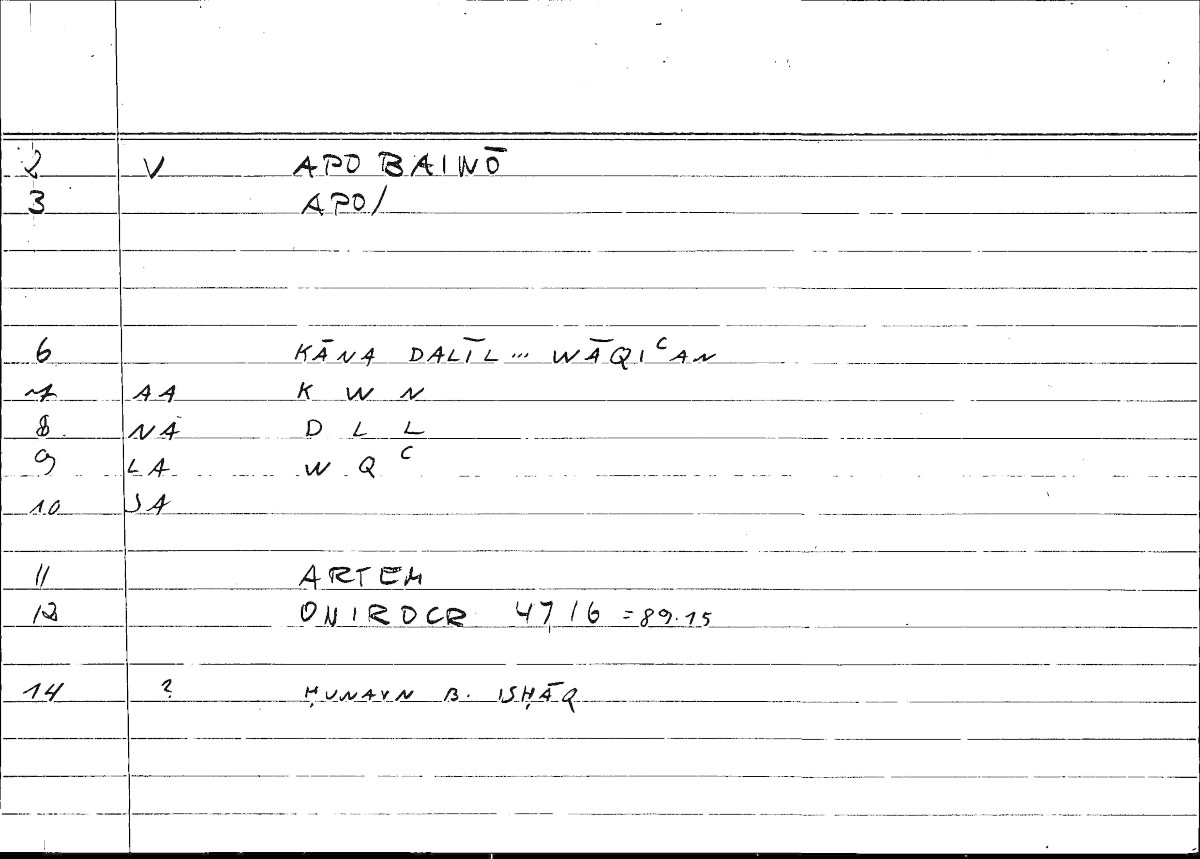 2 V APO BAINŌ
3 APO/
6 KĀNA DALĪL... WĀQIᶜAN
7 AA K W N
8 NA D L L
9 LA W Q ᶜ
10 JA
11 ARTEM
12 ONIROCR 47,16 = 89.15
14 ? ḤUNAYN B. ISḤĀQ